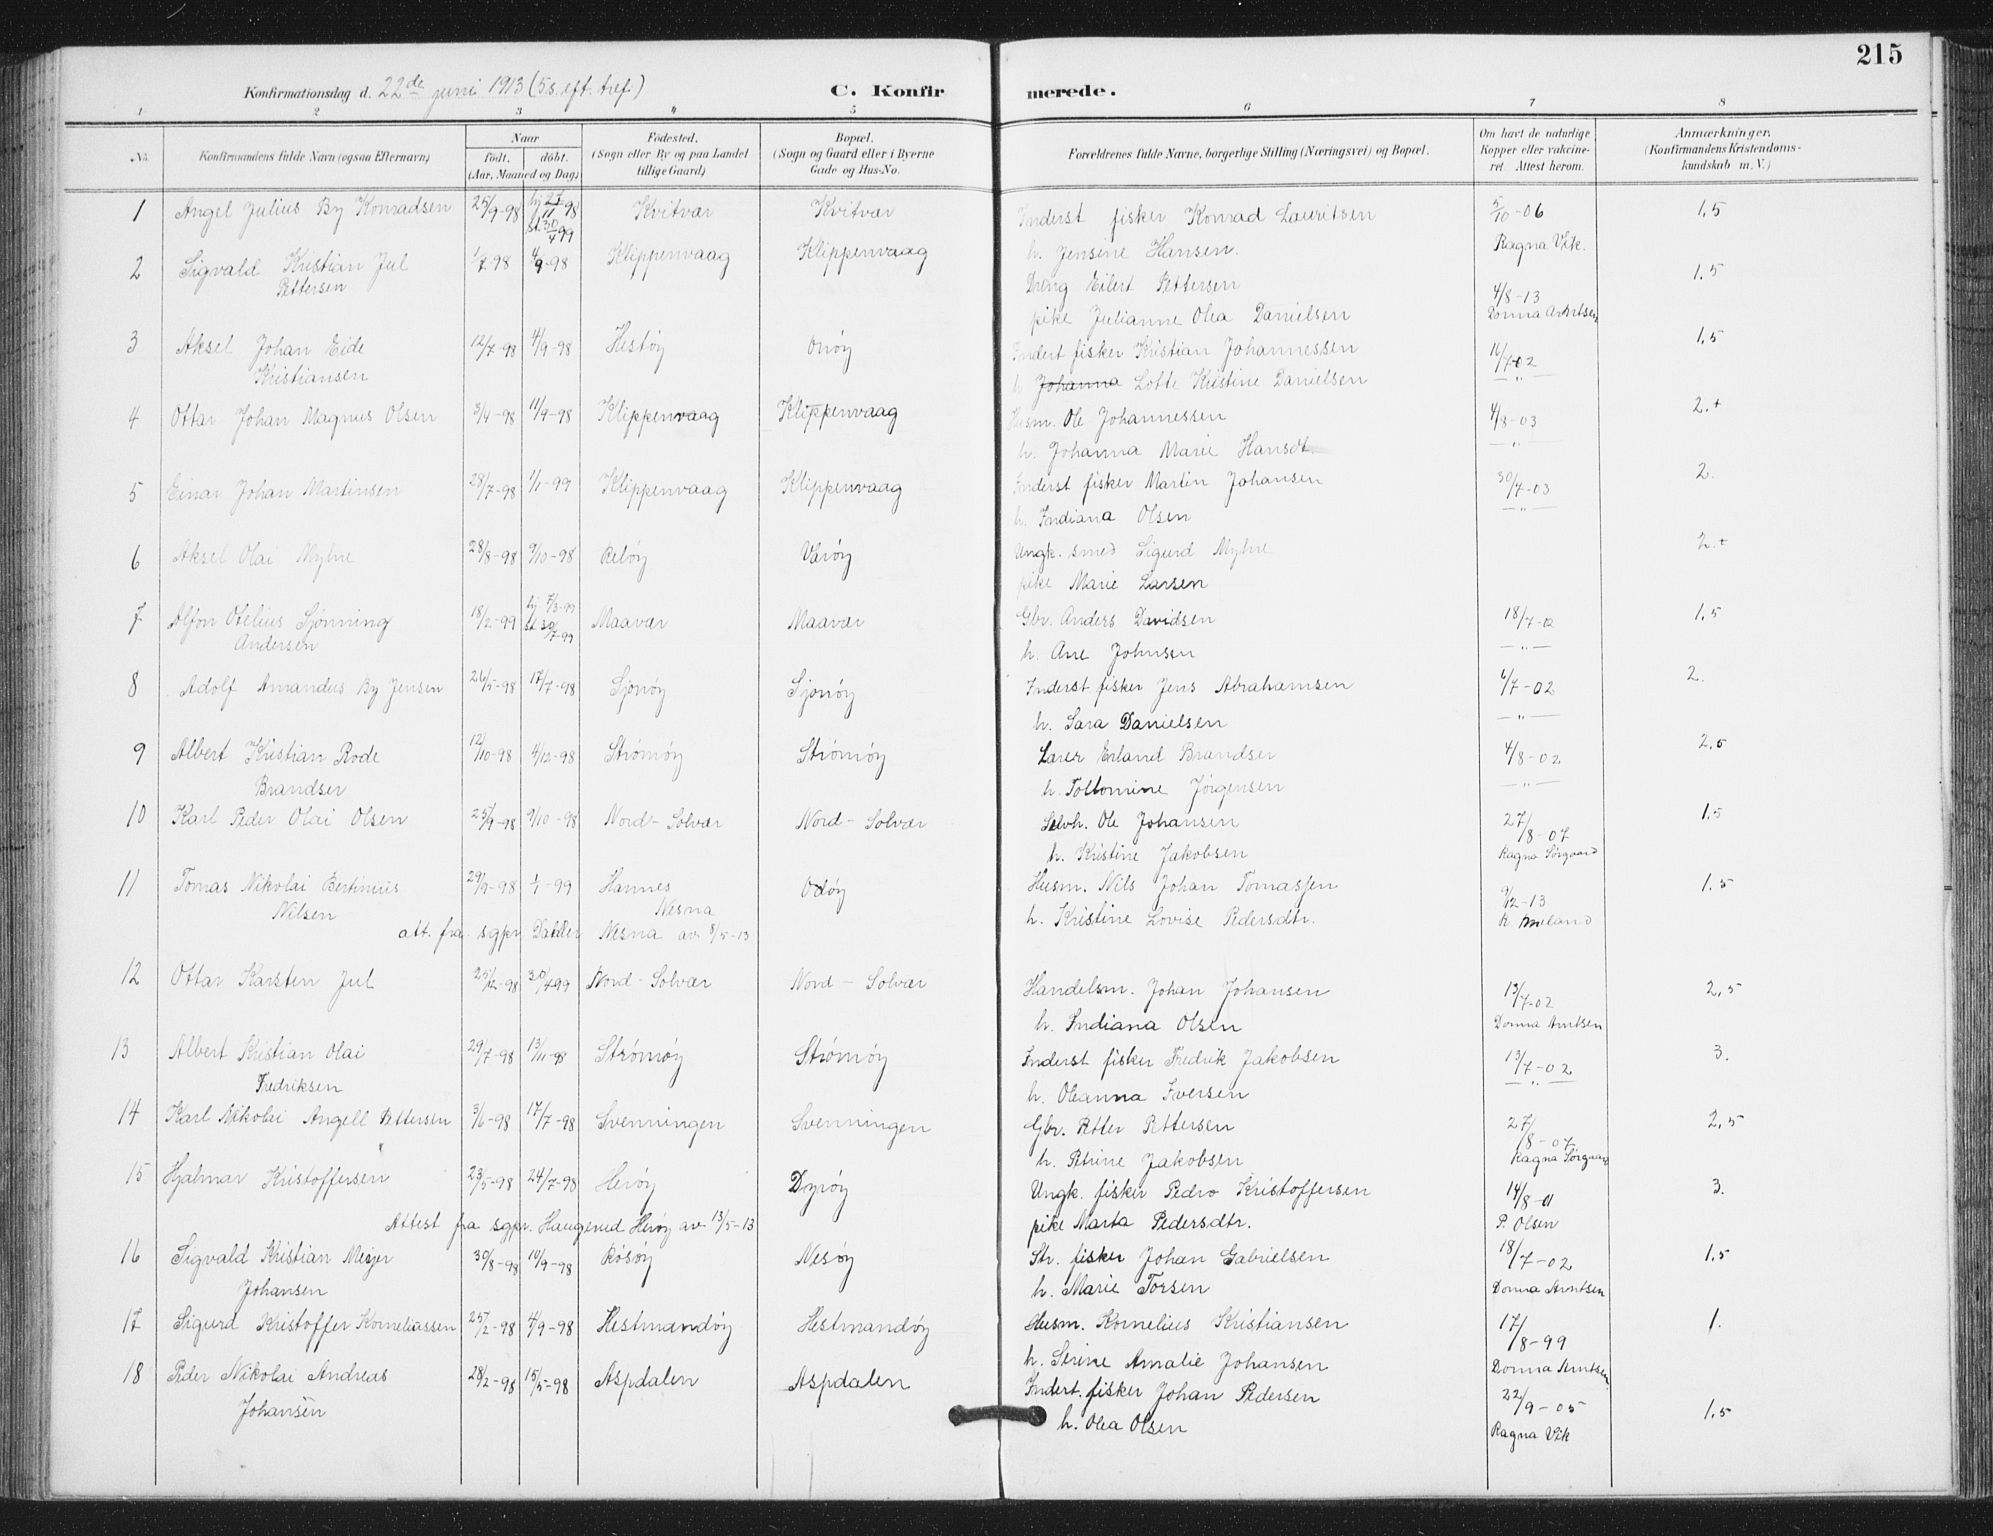 215
Konfirmationsdag d. 22de juni 1913 (5 s. eft. tref.) C. Konfirmerede.
1 2 3 4 5 6 7 8
No. Konfirmandens fulde Navn (ogsaa Efternavn) Naar født, døbt. (Aar, Maaned og Dag) Fødested. (Sogn eller By og paa Landet tillige Gaard) Bopæl. (Sogn og Gaard eller i Byerne Gade og Hus-No. Forældrenes fulde Navne, borgerlige Stilling (Næringsvei) og Bopæl. Om havt de naturlige Kopper eller vakcineret. Attest herom. Anmærkninger. (Konfirmandens Kristendomskundskab m. V.)
1 Angel Julius By Konradsen 25/9-98 hj 27/11 98 Kvitvær Kvitvær Inderst fisker Konrad Lauritsen 5/10-06 1,5
st. 30/4 99 h. Jensine Hansen. Ragna Vik.
2 Sigvald Kristian Jul 1/7-98 4/9-98 Klippenvaag Klippenvaag Dreng Eilert Pettersen 4/8-13 1,5
Pettersen pike Julianne Olea Danielsen Donna Arntsen
3 Aksel Johan Eide 12/7-98 4/9-98 Hestøy Onøy Indert fisker Kristian Johannessen 16/7-02 1,5
Kristiansen h Johanna Lotte Kristine Danielsen — „ —
4 Ottar Johan Magnus Olsen 3/4-98 11/9-98 Klippenvaag Klippenvaag Husm. Ole Johannessen 4/8-03 2.+
h. Johanna Marie Hansdt — „ —
5 Einar Johan Martinsen 28/7-98 1/1-99 Klippenvaag Klippenvaag Inderst fisker Martin Johansen 30/7-03 2.
h. Indiana Olsen — „ —
6 Aksel Olai Myhre 28/8-98 9/10-98 Reløy Varøy Ungk. smed Sigurd Myhre 2.+
pike Marie Larsen
7 Alfon Otelius Sjønning 18/2-99 hj 5/3-99 Maavær Maavær Gbr. Anders Davidsen 18/7-02 1,5
Andersen st 30/7-99 h. Ane Johnsen — „ —
8 Adolf Amandus By Jensen 26/5-98 17/7-98 Sjonøy Sjonøy Inderst fisker Jens Abrahamsen 6/7-02 2.
h. Sara Danielsen — „ —
9 Albert Kristian Rode 12/10-98 4/12-98 Strømøy Strømøy Lærer Erland Brandser 4/8-02 2,5
Brandser h. Tollomine Jørgensen — „ —
10 Karl Peder Olai Olsen 25/9-98 9/10-98 Nord-Solvær Nord-Solvær Selvh. Ole Johansen 27/8-07 1,5
h. Kristine Jakobsen Ragna Sørgaard
11 Tomas Nikolai Bertinius 29/9-98 1/1-99 Hannes Odøy Husm. Nils Johan Tomassen 9/2-13 1.5
Nilsen Nesna h. Kristine Lovise Pedersdtr. K Meland
att. fra sgpr. Dahler Nesna av 8/5-13
12 Ottar Karsten Jul 25/12-98 30/4-99 Nord-Solvær Nord-Solvær Handelsm. Johan Johansen 13/7-02 2,5
h. Indiana Olsen Donna Arntsen
13 Albert Kristian Olai 29/7-98 13/11-98 Strømøy Strømøy Inderst fisker Fredrik Jakobsen 13/7-02 3.
Fredriksen h. Oleanna Iversen — „ —
14 Karl Nikolai Angell Pettersen 3/6-98 17/7-98 Svenningen Svenningen Gbr. Petter Pettersen 27/8-07 2,5
h. Petrine Jakobsen Ragna Sørgaard
15 Hjalmar Kristoffersen 23/5-98 24/7-98 Herøy Dyrøy Ungk. fisker Pedro Kristoffersen 14/8-01 3.
Attest fra sgpr. Haugerud Herøy av 13/5-13 pike Marta Pedersdtr. P. Olsen
16 Sigvald Kristian Mejer 30/8-98 10/9-98 Røsøy Nesøy Str. fisker Johan Gabrielsen 18/7-02 1,5
Johansen h. Marie Torsen Donna Arntsen
17 Sigurd Kristoffer Korneliussen 25/2-98 4/9-98 Hestmandøy Hestmandøy Husm. Kornelius Kristiansen 17/8-99 1.
h. Serine Amalie Johansen Donna Arntsen.
18 Peder Nikolai Andreas 28/2-98 15/5-98 Aspdalen Aspdalen Indert. fisker Johan Pedersen 22/9-05 1,5
Johansen h. Olea Olsen Ragna Vik